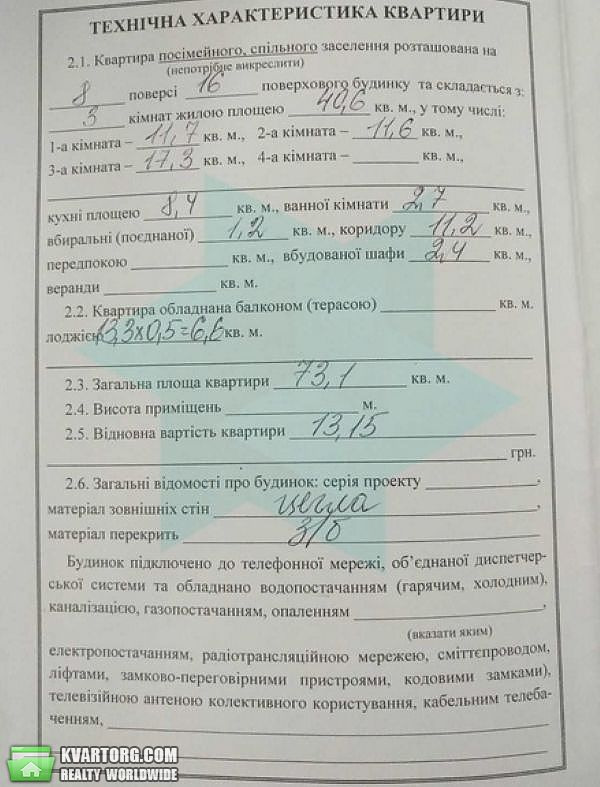 ТЕХНІЧНА ХАРАКТЕРИСТИКА КВАРТИРИ
2.1. Квартира посімейного, спільного заселення розташована на
(непотрібне викреслити)
8 поверсі 16 поверхового будинку та складається з:
3 кімнат жилою площею 40,6 кв. м., у тому числі:
1-а кімната – 11,7 кв. м., 2-а кімната – 11,6 кв. м.,
3-а кімната – 17,3 кв. м., 4-а кімната – кв. м.,
кухні площею 8,4 кв. м., ванної кімнати 2,7 кв. м.,
вбиральні (поєднаної) 1,2 кв. м., коридору 11,2 кв. м.,
передпокою кв. м., вбудованої шафи 2,4 кв. м.,
веранди кв. м.
2.2. Квартира обладнана балконом (терасою) кв. м.
лоджією 13,3x0,5=6,6 кв. м.
2.3. Загальна площа квартири 73,1 кв. м.
2.4. Висота приміщень м.
2.5. Відновна вартість квартири 13,15
грн.
2.6. Загальні відомості про будинок: серія проекту ,
матеріал зовнішніх стін цегла ,
матеріал перекрить з/б
Будинок підключено до телефонної мережі, об’єднаної диспетчер-
ської системи та обладнано водопостачанням (гарячим, холодним),
каналізацією, газопостачанням, опаленням ,
(вказати яким)
електропостачанням, радіотрансляційною мережею, сміттєпроводом,
ліфтами, замково-переговірними пристроями, кодовими замками),
телевізійною антеною колективного користування, кабельним телеба-
ченням,
KVARTORG.COM
REALTY WORLDWIDE